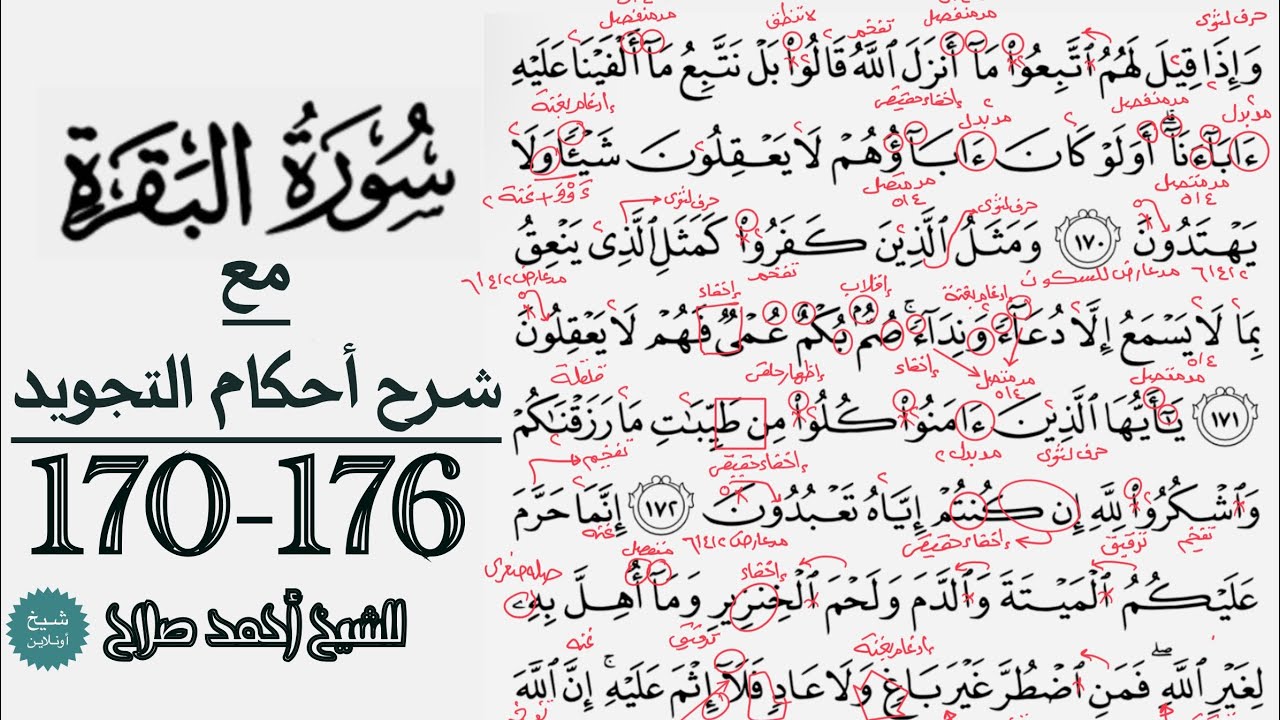 سُورَةُ البَقَرَةِ
مع
شرح أحكام التجويد
170-176
للشيخ أحمد صلاح
شيخ
أونلاين
مد منفصل لا تنطق مد منفصل حرف لثوي
تفخم
وَإِذَا قِيلَ لَهُمُ ٱتَّبِعُوا۟ مَآ أَنزَلَ ٱللَّهُ قَالُوا۟ بَلْ نَتَّبِعُ مَآ أَلْفَيْنَا عَلَيْهِ
مد بدل مد منفصل مد بدل إخفاء حقيقي إدغام بغنة
ءَابَآءَنَآ ۗ أَوَلَوْ كَانَ ءَابَآؤُهُمْ لَا يَعْقِلُونَ شَيْـًٔا وَلَا
مد متصل ٤ ١ ٥ حرف لثوي مد متصل ٤ ١ ٥ حرف لثوي
يَهْتَدُونَ ١٧٠ وَمَثَلُ ٱلَّذِينَ كَفَرُوا۟ كَمَثَلِ ٱلَّذِى يَنْعِقُ
مد عارض للسكون ٢ ١ ٤ ١ ٦ إدغام بغنة إقلاب تفخم إخفاء مد عارض ٢ ١ ٤ ١ ٦
بِمَا لَا يَسْمَعُ إِلَّا دُعَآءً وَنِدَآءً ۚ صُمٌّۢ بُكْمٌ عُمْىٌ فَهُمْ لَا يَعْقِلُونَ
مد متصل ٤ ١ ٥ مد متصل ٤ ١ ٥ إخفاء إظهار حلقي قلقلة
١٧١ يَـٰٓأَيُّهَا ٱلَّذِينَ ءَامَنُوا۟ كُلُوا۟ مِن طَيِّبَـٰتِ مَا رَزَقْنَـٰكُمْ
حرف لثوي مد بدل ٢ إخفاء حقيقي تفخيم
وَٱشْكُرُوا۟ لِلَّهِ إِن كُنتُمْ إِيَّاهُ تَعْبُدُونَ ١٧٢ إِنَّمَا حَرَّمَ
تفخم ترقيق إخفاء حقيقي مد عارض ٢ ١ ٤ ١ ٦ غنه
إخفاء منفصل صله صغرى
عَلَيْكُمُ ٱلْمَيْتَةَ وَٱلدَّمَ وَلَحْمَ ٱلْخِنزِيرِ وَمَآ أُهِلَّ بِهِۦ
إدغام بغنه ترقيق غنه
لِغَيْرِ ٱللَّهِ ۖ فَمَنِ ٱضْطُرَّ غَيْرَ بَاغٍ وَلَا عَادٍ فَلَآ إِثْمَ عَلَيْهِ ۚ إِنَّ ٱللَّهَ